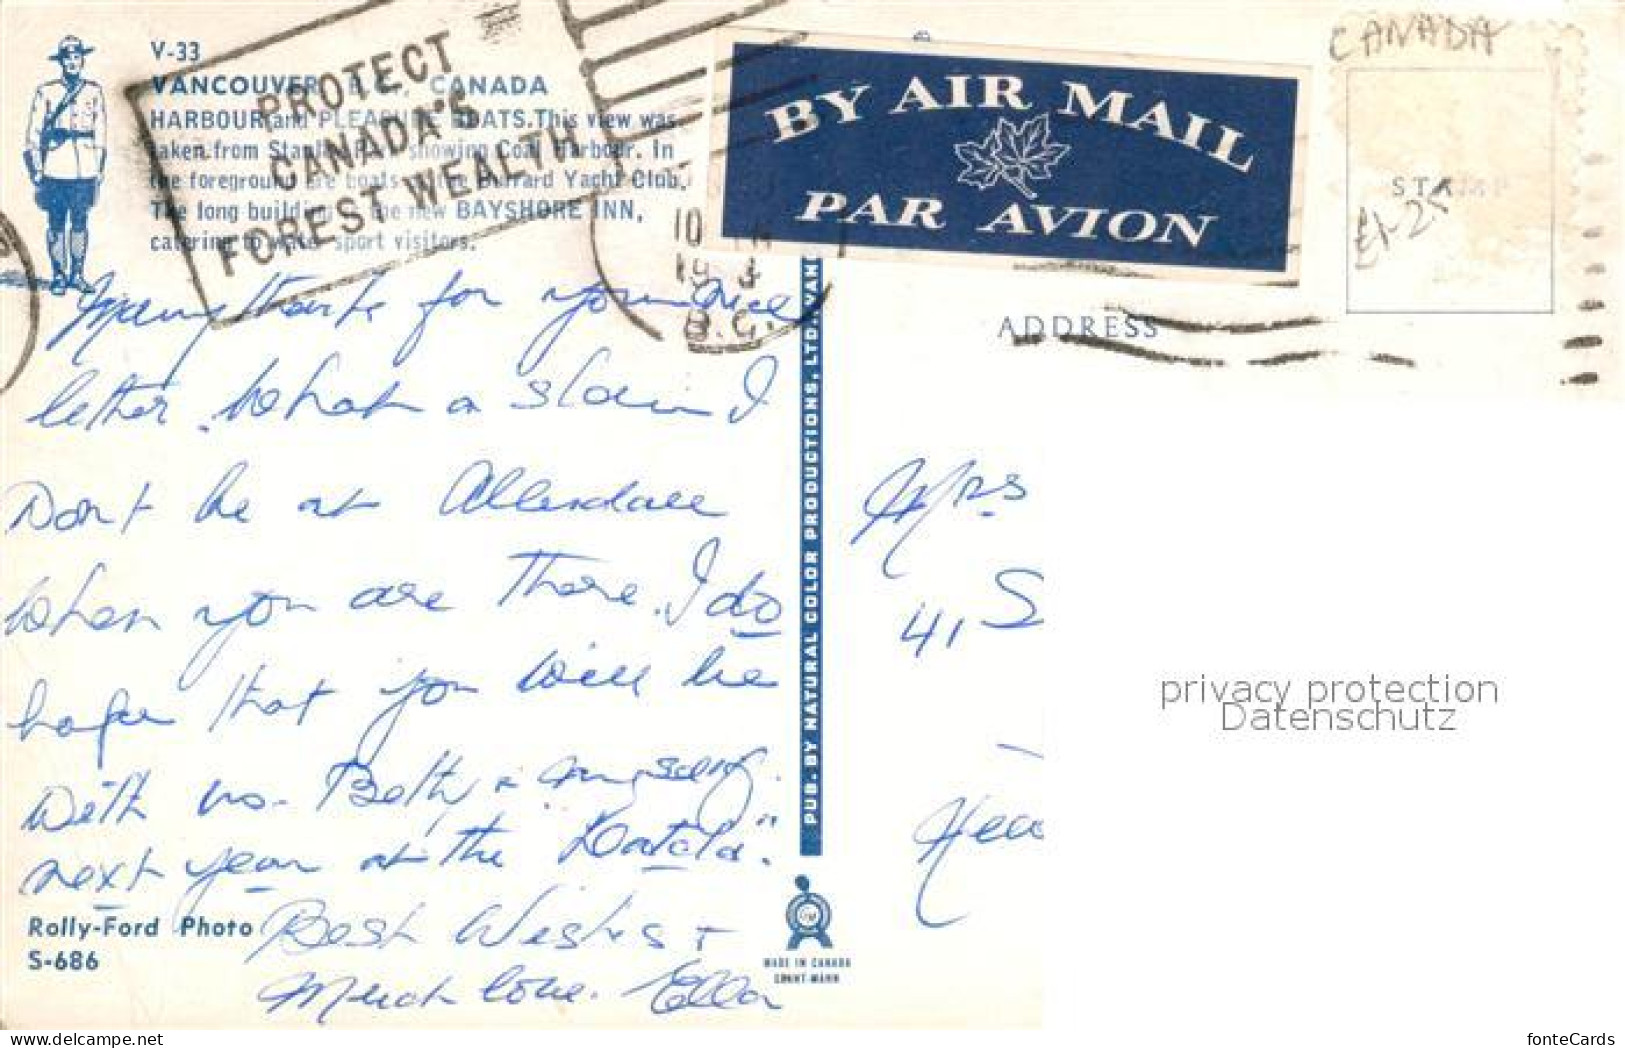 V-33
VANCOUVER B.C. CANADA
HARBOUR and PLEASURE BOATS. This view was
taken from Stanley Park showing Coal Harbour. In
the foreground are boats of the Burrard Yacht Club.
The long building is the new BAYSHORE INN,
catering to water sport visitors.
PROTECT
CANADA'S
FOREST WEALTH
10
19
B.C.
BY AIR MAIL
PAR AVION
CANADA
STAMP
ADDRESS
Many thanks for your nice
letter. What a I
Dont be at
When you are there. I do
hope that you will be
with us. Betty &
next year at the
Best Wishes +
Much love. Ella
Mrs
41 S
PUB. BY NATURAL COLOR PRODUCTIONS, LTD. VAN
Rolly-Ford Photo
S-686
MADE IN CANADA
GRANT-MANN
privacy protection
Datenschutz
fonteCards